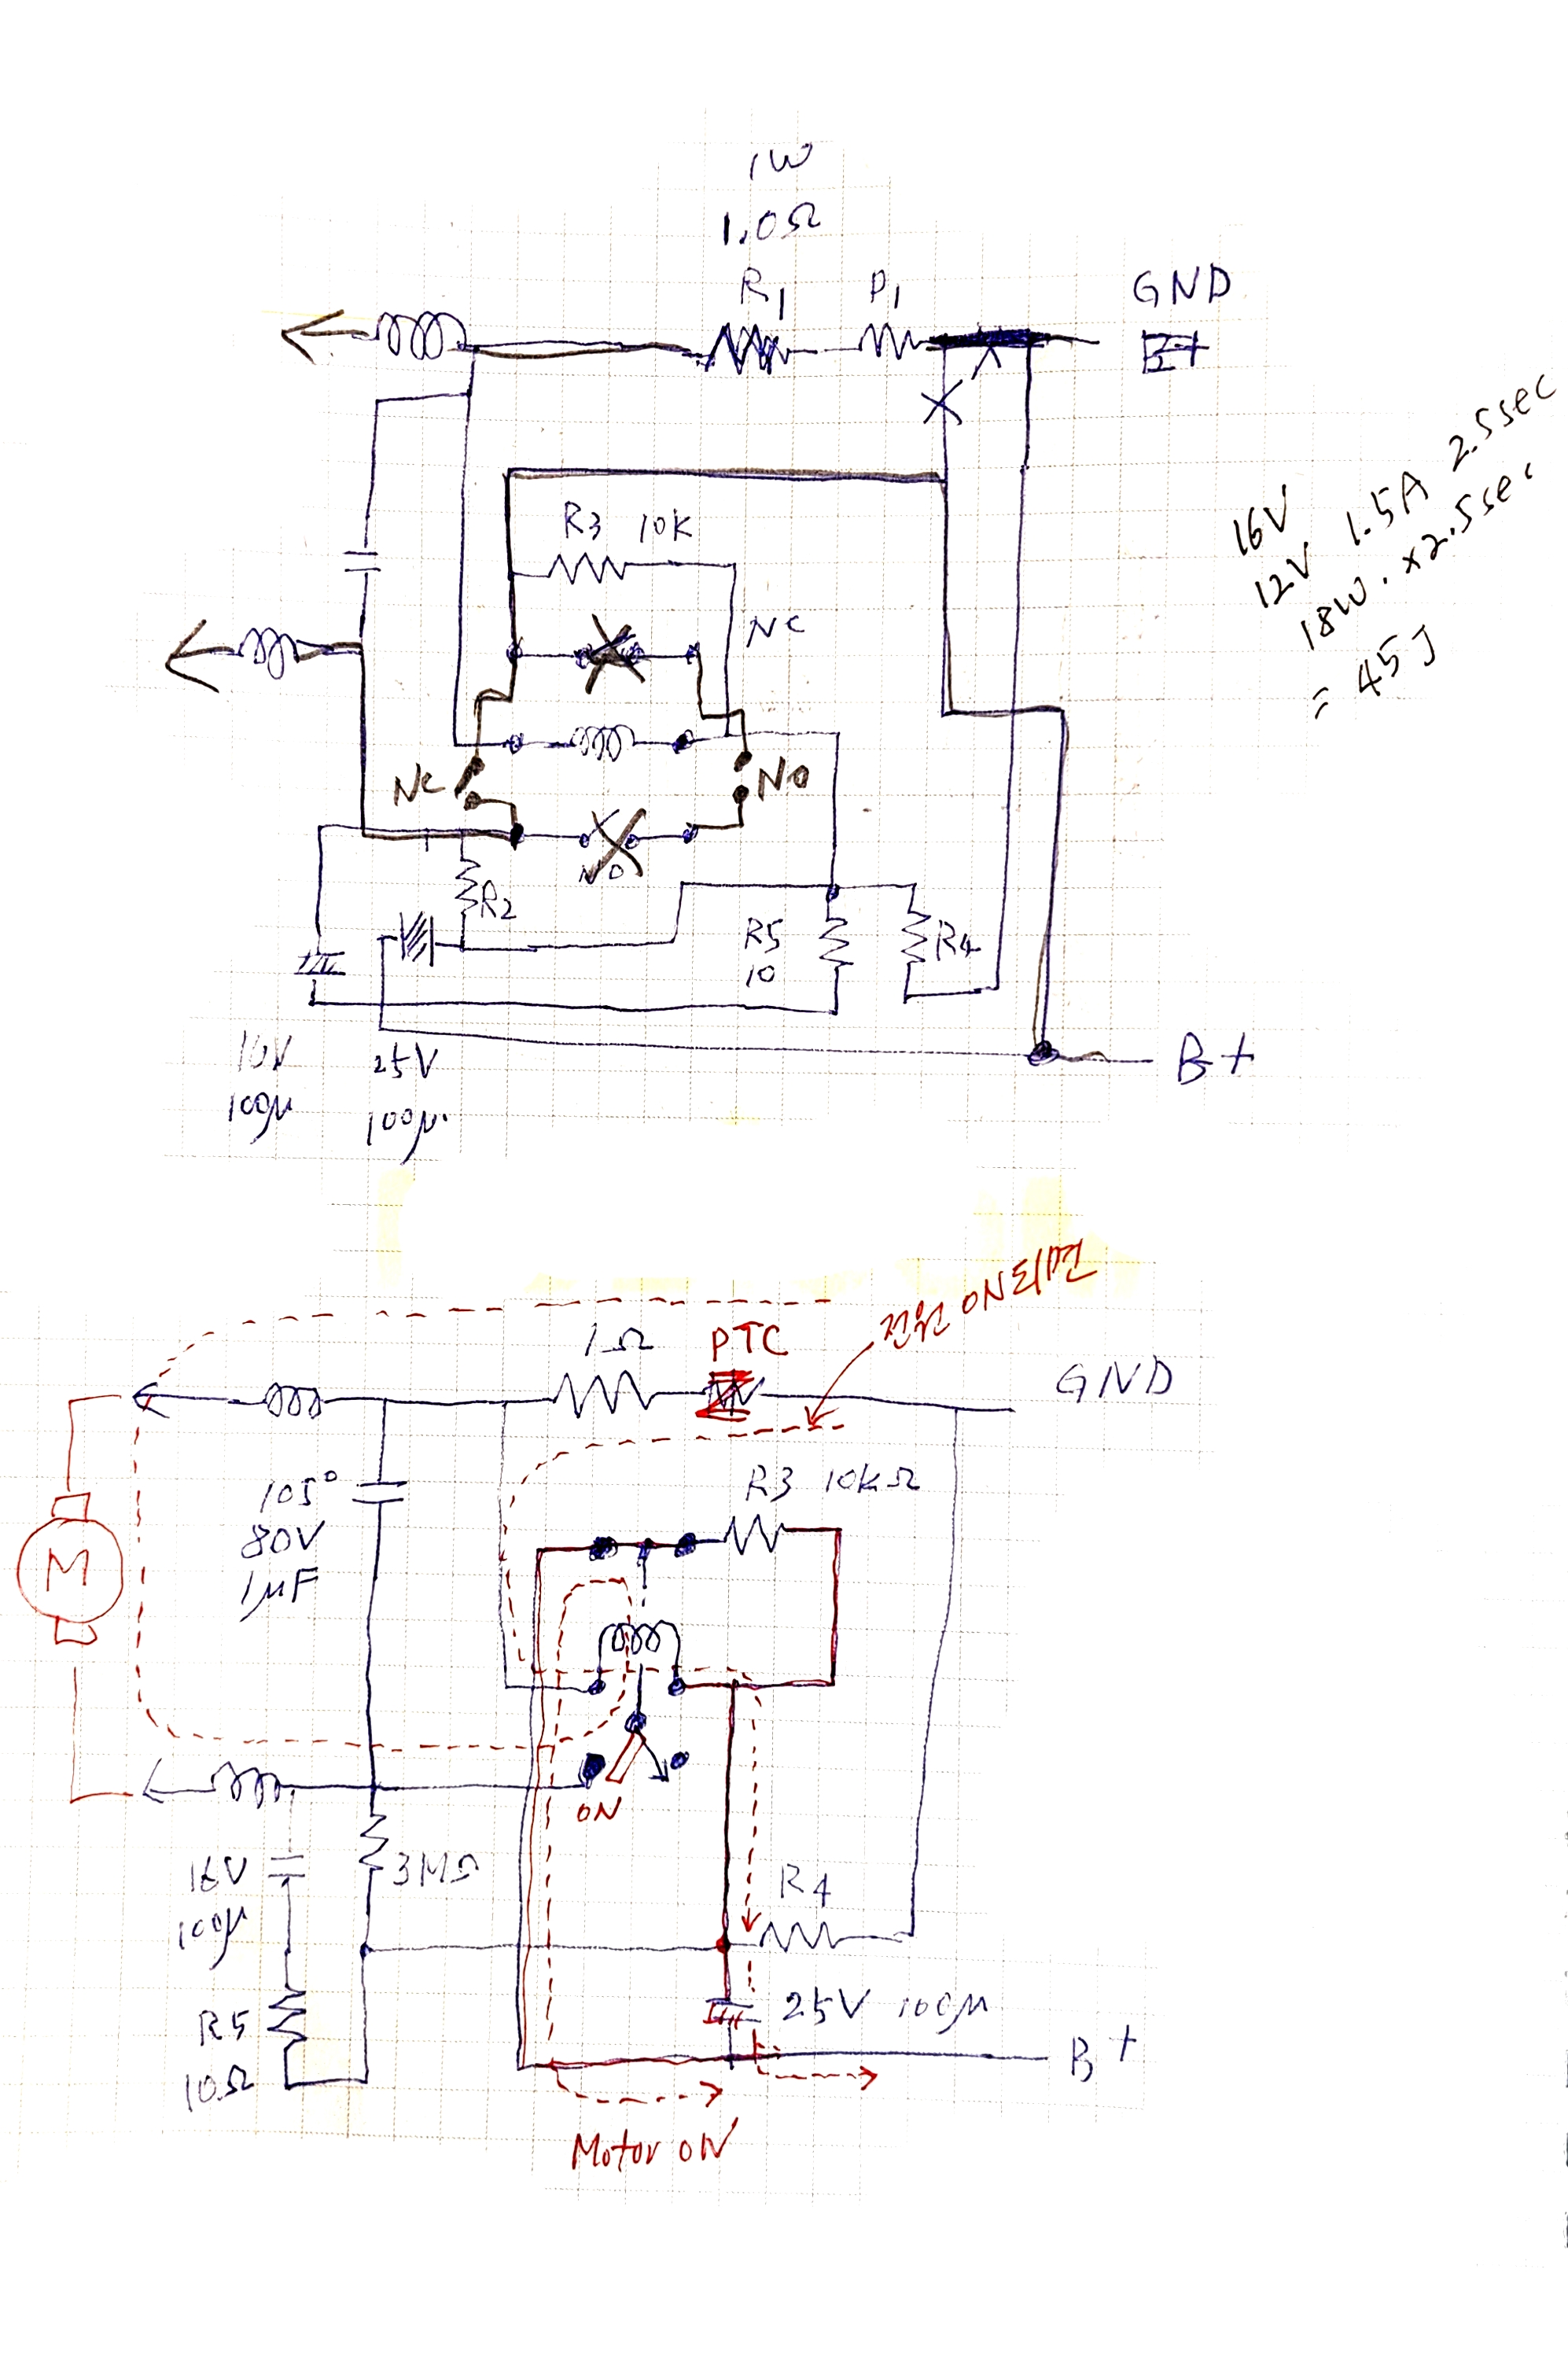 1W
1.0Ω
R1
P1
GND
16V
12V 1.5A 2.5sec
18W. x2.5sec
= 45J
R3 10K
NC
NC
NO
NO
R2
R5
10
R4
16V
100μ
25V
100μ.
B+
전원 ON되면
1Ω
PTC
GND
R3 10kΩ
105°
80V
1μF
M
ON
16V
100μ
3MΩ
R4
R5
10Ω
25V 100μ
B+
Motor ON